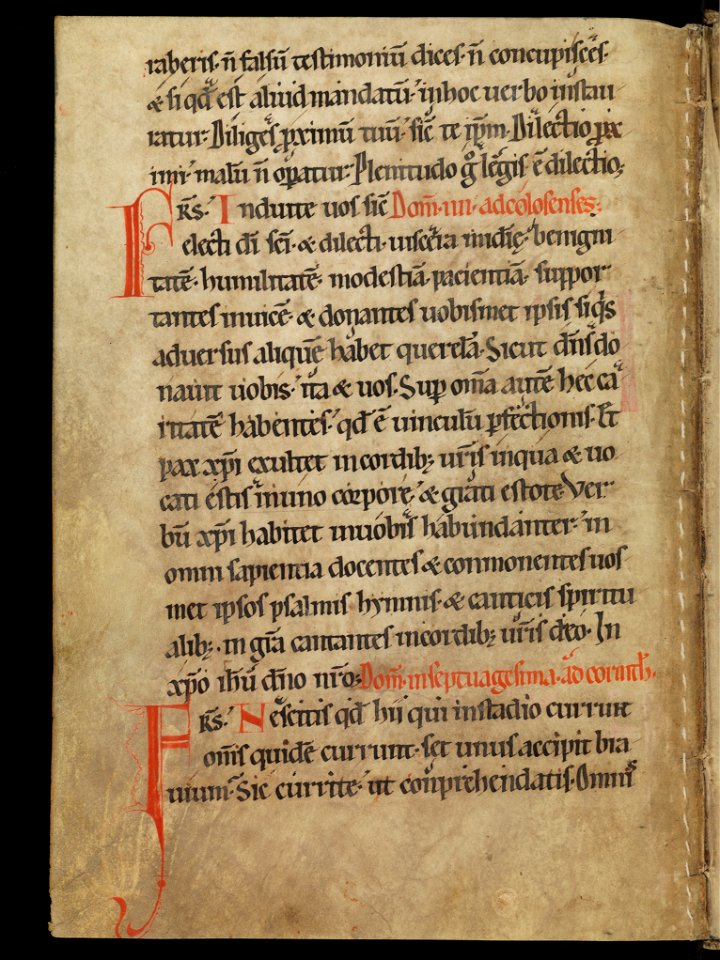 raberis. n̄ falsū testimoniū dices. n̄ concupisces.
& si qd̄ est aliud mandatū. in hoc uerbo instau
ratur. Diliges ꝓximū tuū. sic̄ te ip̄m. Dilectio ꝓx
imi malū n̄ oꝑatur. Plenitudo g̊ legis ē dilectio;
Fr̄s. Induite uos sic̄ Dom̄. iiii. ad colosenses.
electi dī sc̄i. & dilecti. uiscera mīdię. benigni
tatē. humilitatē. modestiā. pacientiā. suppor
tantes inuicē. & donantes uobismet ipsis siqis
aduersus aliquē habet querelā. Sicut dn̄s do
nauit uobis. ita & uos. Suꝑ om̄a autē hec ca
ritatē habentes. qd̄ ē uinculū ꝑfectionis. Et
pax xp̄i exultet in cordib; ur̄is in qua & uo
cati estis in uno corpore. & grati estote. Ver
bū xp̄i habitet in uobis habundanter. in
omni sapientia docentes & conmonentes uos
met ipsos psalmis hymnis. & canticis spiritu
alib;. in gr̄a cantantes in cordib; ur̄is deo. In
xp̄o ih̄u dn̄o nr̄o; Dom̄. in septuagesima. ad corinth̄.
Fr̄s. Nescitis qd̄ hii qui in stadio currunt
om̄s quidē currunt. set unus accipit bra
uium. Sic currite. ut conprehendatis. Omnis